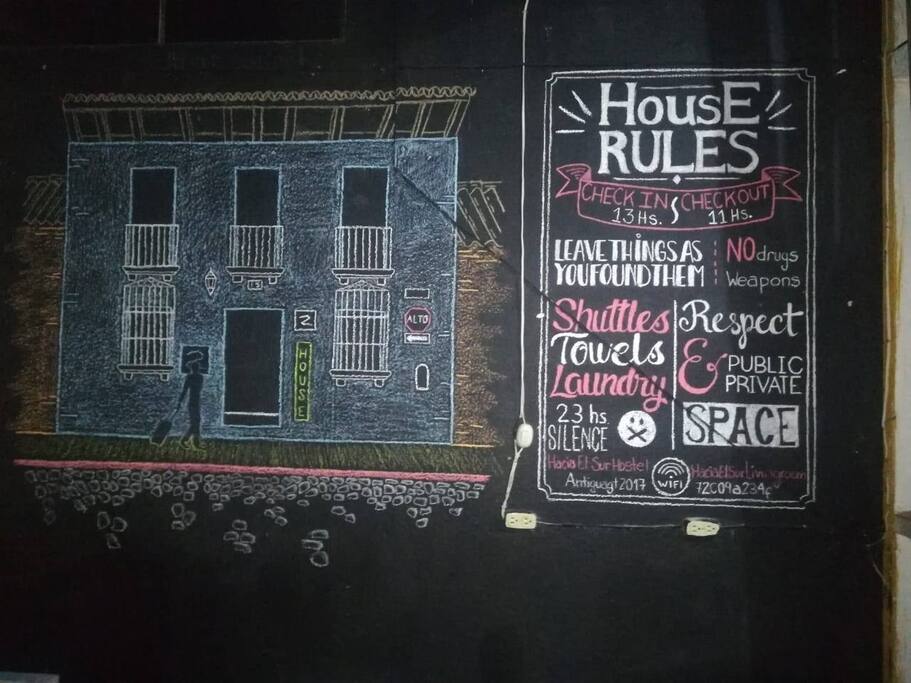 13
ALTO
Z
HOUSE
HousE
RULES
CHECK IN CHECKOUT
13 Hs. 11 Hs.
LEAVE THINGS AS
YOU FOUND THEM
NO drugs
Weapons
Shuttles
Towels
Laundry
23 hs
SILENCE
Respect
& PUBLIC
PRIVATE
SPACE
Hacia El Sur Hostel
Antiguagt2017
WiFi
HaciaElSurLivingroom